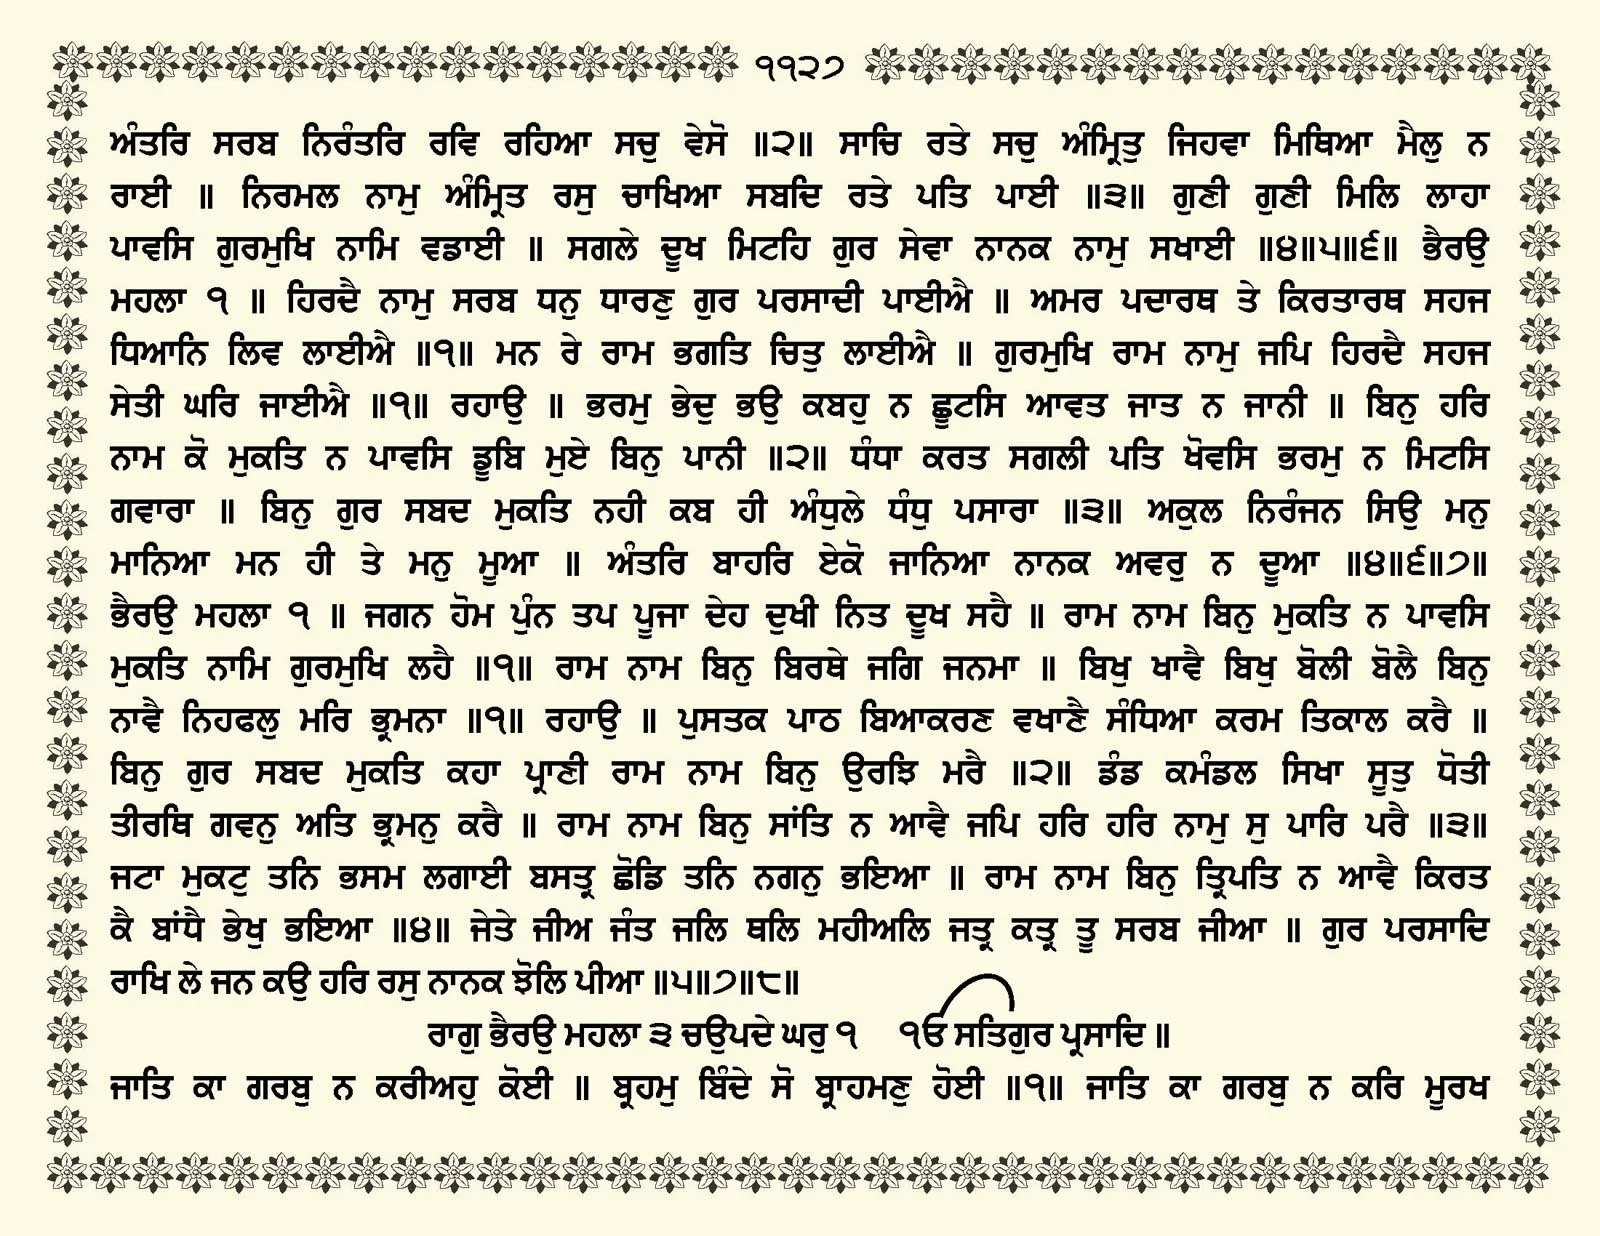 ੧੧੨੭
ਅੰਤਰਿ ਸਰਬ ਨਿਰੰਤਰਿ ਰਵਿ ਰਹਿਆ ਸਚੁ ਵੇਸੋ ॥੨॥ ਸਾਚਿ ਰਤੇ ਸਚੁ ਅੰਮ੍ਰਿਤੁ ਜਿਹਵਾ ਮਿਥਿਆ ਮੈਲੁ ਨ
ਰਾਈ ॥ ਨਿਰਮਲ ਨਾਮੁ ਅੰਮ੍ਰਿਤ ਰਸੁ ਚਾਖਿਆ ਸਬਦਿ ਰਤੇ ਪਤਿ ਪਾਈ ॥੩॥ ਗੁਣੀ ਗੁਣੀ ਮਿਲਿ ਲਾਹਾ
ਪਾਵਸਿ ਗੁਰਮੁਖਿ ਨਾਮਿ ਵਡਾਈ ॥ ਸਗਲੇ ਦੂਖ ਮਿਟਹਿ ਗੁਰ ਸੇਵਾ ਨਾਨਕ ਨਾਮੁ ਸਖਾਈ ॥੪॥੫॥੬॥ ਭੈਰਉ
ਮਹਲਾ ੧ ॥ ਹਿਰਦੈ ਨਾਮੁ ਸਰਬ ਧਨੁ ਧਾਰਣੁ ਗੁਰ ਪਰਸਾਦੀ ਪਾਈਐ ॥ ਅਮਰ ਪਦਾਰਥ ਤੇ ਕਿਰਤਾਰਥ ਸਹਜ
ਧਿਆਨਿ ਲਿਵ ਲਾਈਐ ॥੧॥ ਮਨ ਰੇ ਰਾਮ ਭਗਤਿ ਚਿਤੁ ਲਾਈਐ ॥ ਗੁਰਮੁਖਿ ਰਾਮ ਨਾਮੁ ਜਪਿ ਹਿਰਦੈ ਸਹਜ
ਸੇਤੀ ਘਰਿ ਜਾਈਐ ॥੧॥ ਰਹਾਉ ॥ ਭਰਮੁ ਭੇਦੁ ਭਉ ਕਬਹੁ ਨ ਛੂਟਸਿ ਆਵਤ ਜਾਤ ਨ ਜਾਨੀ ॥ ਬਿਨੁ ਹਰਿ
ਨਾਮ ਕੋ ਮੁਕਤਿ ਨ ਪਾਵਸਿ ਡੂਬਿ ਮੁਏ ਬਿਨੁ ਪਾਨੀ ॥੨॥ ਧੰਧਾ ਕਰਤ ਸਗਲੀ ਪਤਿ ਖੋਵਸਿ ਭਰਮੁ ਨ ਮਿਟਸਿ
ਗਵਾਰਾ ॥ ਬਿਨੁ ਗੁਰ ਸਬਦ ਮੁਕਤਿ ਨਹੀ ਕਬ ਹੀ ਅੰਧੁਲੇ ਧੰਧੁ ਪਸਾਰਾ ॥੩॥ ਅਕੁਲ ਨਿਰੰਜਨ ਸਿਉ ਮਨੁ
ਮਾਨਿਆ ਮਨ ਹੀ ਤੇ ਮਨੁ ਮੂਆ ॥ ਅੰਤਰਿ ਬਾਹਰਿ ਏਕੋ ਜਾਨਿਆ ਨਾਨਕ ਅਵਰੁ ਨ ਦੂਆ ॥੪॥੬॥੭॥
ਭੈਰਉ ਮਹਲਾ ੧ ॥ ਜਗਨ ਹੋਮ ਪੁੰਨ ਤਪ ਪੂਜਾ ਦੇਹ ਦੁਖੀ ਨਿਤ ਦੂਖ ਸਹੈ ॥ ਰਾਮ ਨਾਮ ਬਿਨੁ ਮੁਕਤਿ ਨ ਪਾਵਸਿ
ਮੁਕਤਿ ਨਾਮਿ ਗੁਰਮੁਖਿ ਲਹੈ ॥੧॥ ਰਾਮ ਨਾਮ ਬਿਨੁ ਬਿਰਥੇ ਜਗਿ ਜਨਮਾ ॥ ਬਿਖੁ ਖਾਵੈ ਬਿਖੁ ਬੋਲੀ ਬੋਲੈ ਬਿਨੁ
ਨਾਵੈ ਨਿਹਫਲੁ ਮਰਿ ਭ੍ਰਮਨਾ ॥੧॥ ਰਹਾਉ ॥ ਪੁਸਤਕ ਪਾਠ ਬਿਆਕਰਣ ਵਖਾਣੈ ਸੰਧਿਆ ਕਰਮ ਤਿਕਾਲ ਕਰੈ ॥
ਬਿਨੁ ਗੁਰ ਸਬਦ ਮੁਕਤਿ ਕਹਾ ਪ੍ਰਾਣੀ ਰਾਮ ਨਾਮ ਬਿਨੁ ਉਰਝਿ ਮਰੈ ॥੨॥ ਡੰਡ ਕਮੰਡਲ ਸਿਖਾ ਸੂਤੁ ਧੋਤੀ
ਤੀਰਥਿ ਗਵਨੁ ਅਤਿ ਭ੍ਰਮਨੁ ਕਰੈ ॥ ਰਾਮ ਨਾਮ ਬਿਨੁ ਸਾਂਤਿ ਨ ਆਵੈ ਜਪਿ ਹਰਿ ਹਰਿ ਨਾਮੁ ਸੁ ਪਾਰਿ ਪਰੈ ॥੩॥
ਜਟਾ ਮੁਕਟੁ ਤਨਿ ਭਸਮ ਲਗਾਈ ਬਸਤ੍ਰ ਛੋਡਿ ਤਨਿ ਨਗਨੁ ਭਇਆ ॥ ਰਾਮ ਨਾਮ ਬਿਨੁ ਤ੍ਰਿਪਤਿ ਨ ਆਵੈ ਕਿਰਤ
ਕੈ ਬਾਂਧੈ ਭੇਖੁ ਭਇਆ ॥੪॥ ਜੇਤੇ ਜੀਅ ਜੰਤ ਜਲਿ ਥਲਿ ਮਹੀਅਲਿ ਜਤ੍ਰ ਕਤ੍ਰ ਤੂ ਸਰਬ ਜੀਆ ॥ ਗੁਰ ਪਰਸਾਦਿ
ਰਾਖਿ ਲੇ ਜਨ ਕਉ ਹਰਿ ਰਸੁ ਨਾਨਕ ਝੋਲਿ ਪੀਆ ॥੫॥੭॥੮॥
ਰਾਗੁ ਭੈਰਉ ਮਹਲਾ ੩ ਚਉਪਦੇ ਘਰੁ ੧ ੴ ਸਤਿਗੁਰ ਪ੍ਰਸਾਦਿ ॥
ਜਾਤਿ ਕਾ ਗਰਬੁ ਨ ਕਰੀਅਹੁ ਕੋਈ ॥ ਬ੍ਰਹਮੁ ਬਿੰਦੇ ਸੋ ਬ੍ਰਾਹਮਣੁ ਹੋਈ ॥੧॥ ਜਾਤਿ ਕਾ ਗਰਬੁ ਨ ਕਰਿ ਮੂਰਖ